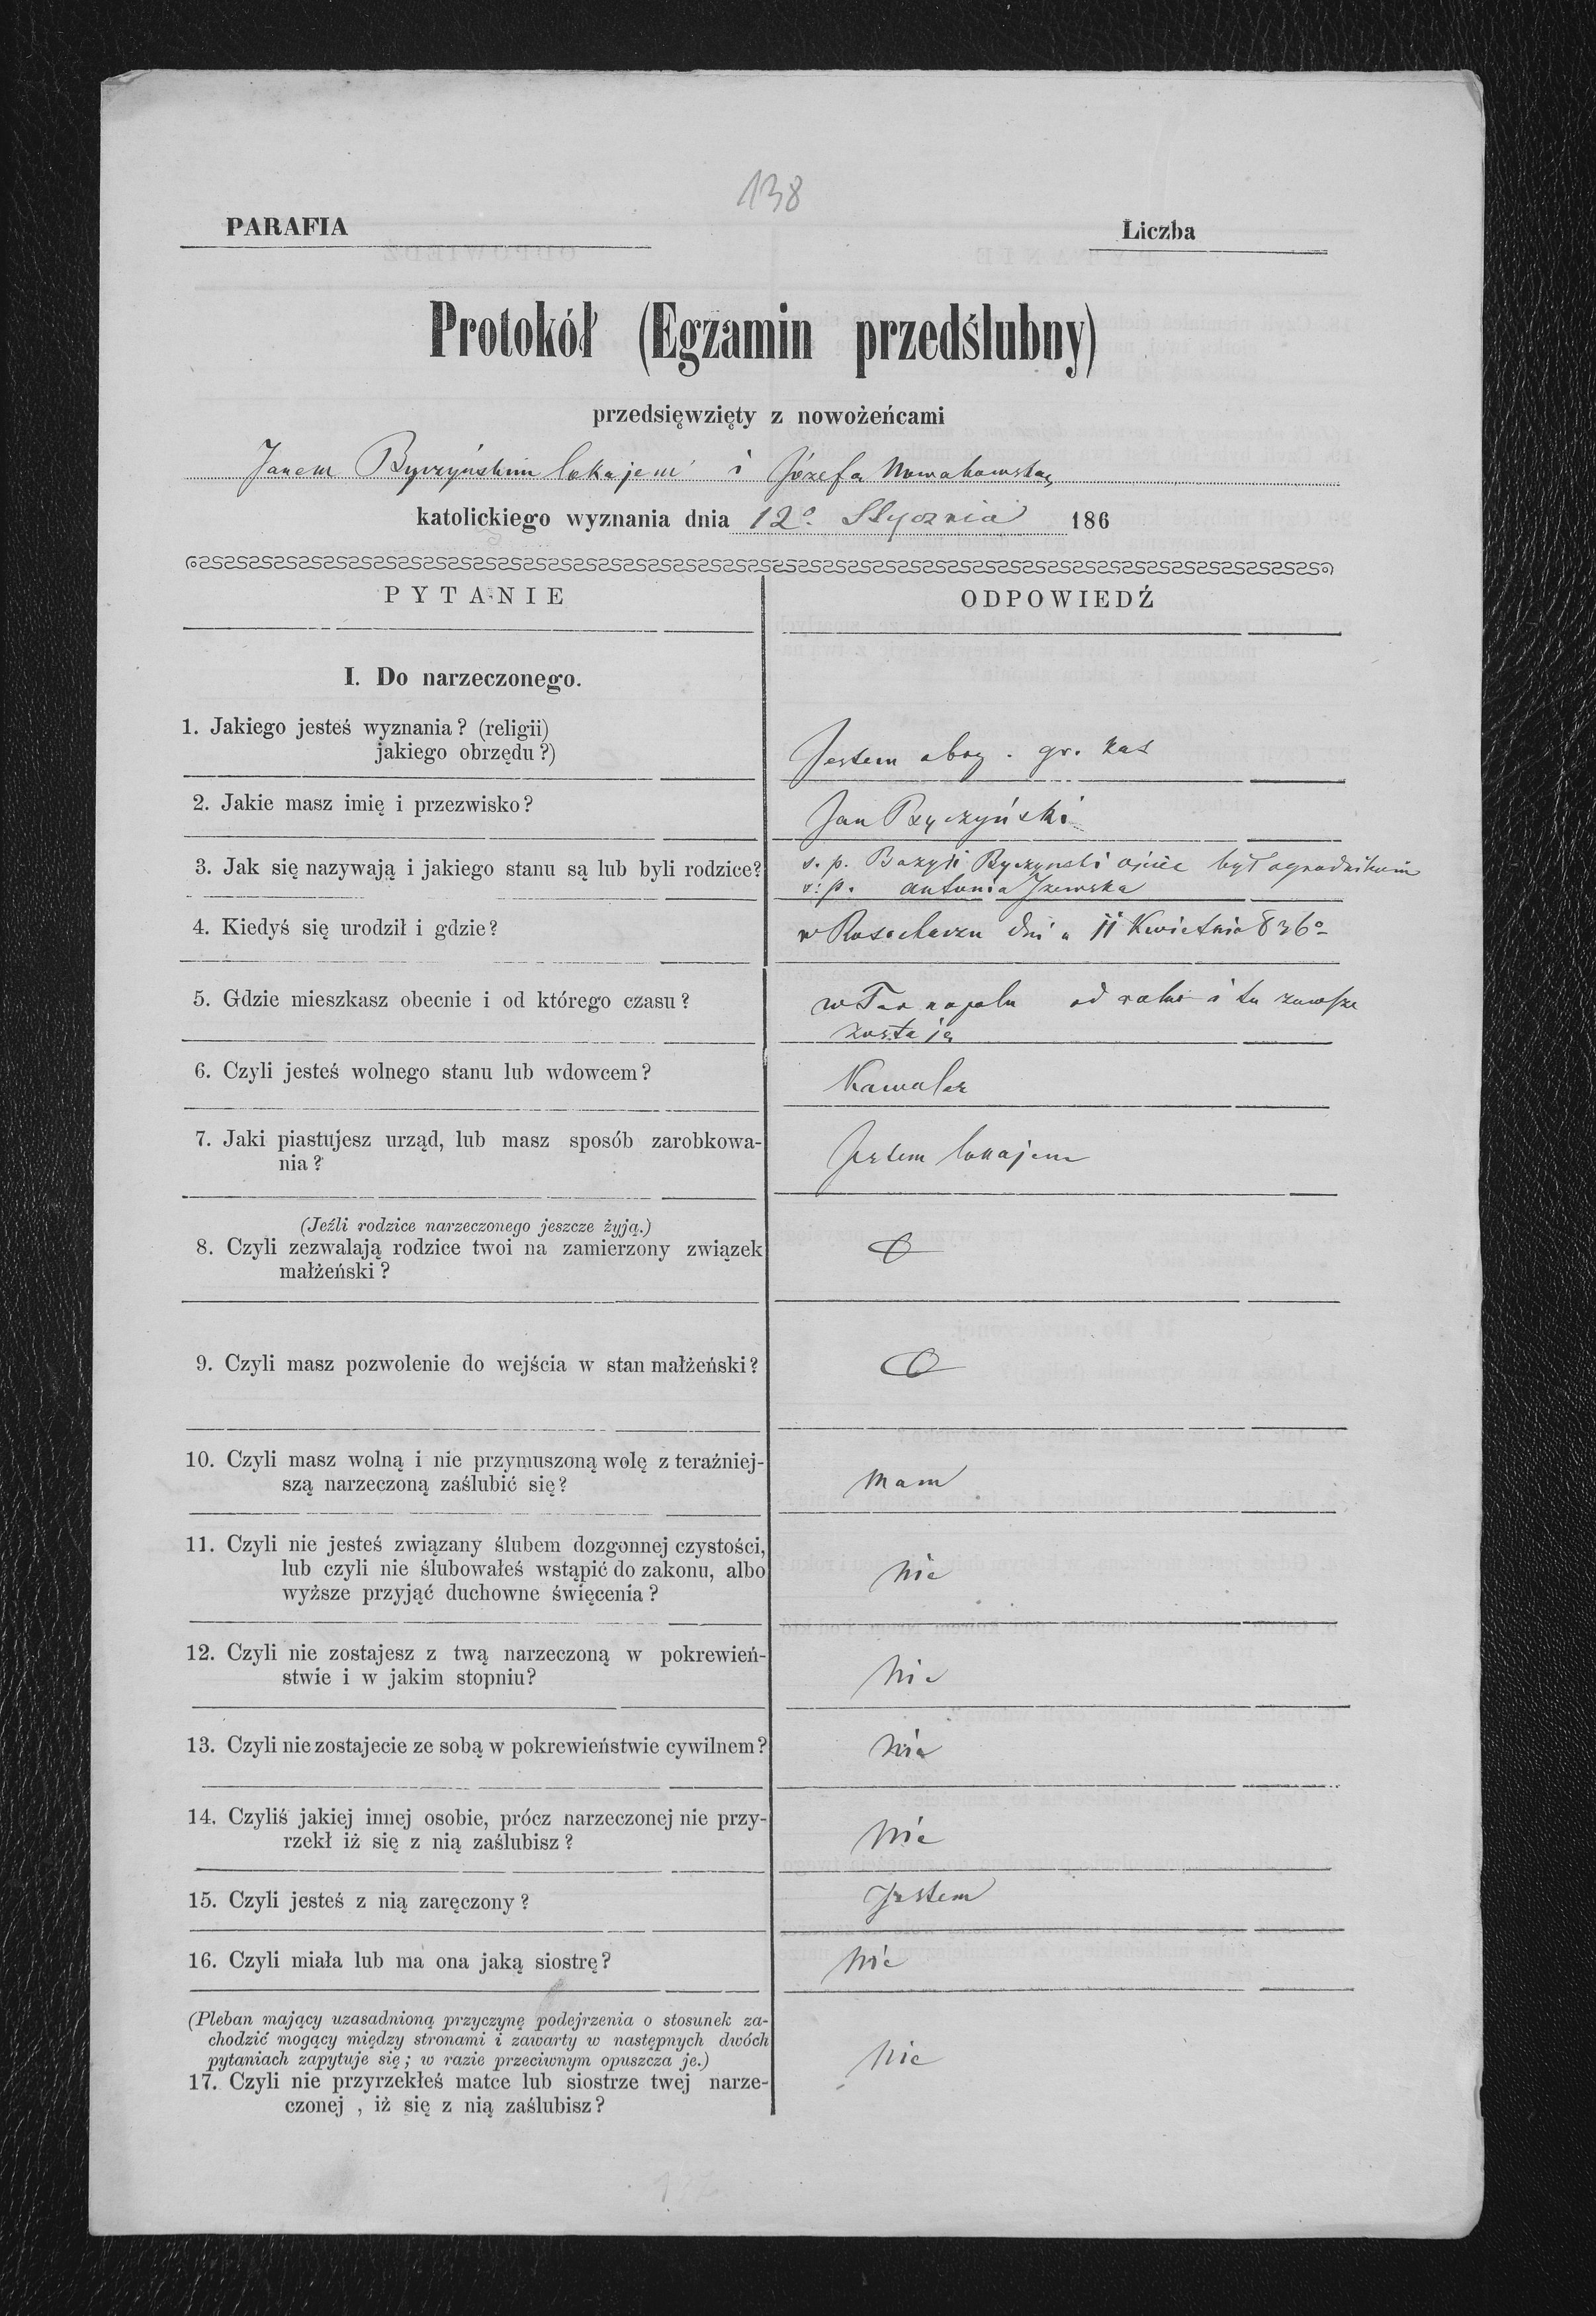 138
PARAFIA
Liczba
Protokół (Egzamin przedślubny)
przedsięwzięty z nowożeńcami
Janem Byczyńskim lokajem i Józefą Nowakowską
katolickiego wyznania dnia 12o. Stycznia 186
PYTANIE
ODPOWIEDŹ
I. Do narzeczonego.
1. Jakiego jesteś wyznania? (religii)
jakiego obrzędu?)
Jestem obrz. gr. kat
2. Jakie masz imię i przezwisko?
Jan Byczyński
3. Jak się nazywają i jakiego stanu są lub byli rodzice?
s. p. Bazyli Byczynski ojciec był ogrodnikiem
s: p. Antonia
4. Kiedyś się urodził i gdzie?
w Rosochaczu dnia 11 Kwietnia 836o
5. Gdzie mieszkasz obecnie i od którego czasu?
w Tarnopolu od roku i tu zawsze
zostaję
6. Czyli jesteś wolnego stanu lub wdowcem?
Kawaler
7. Jaki piastujesz urząd, lub masz sposób zarobkowa-
nia?
Jestem lokajem
(Jeźli rodzice narzeczonego jeszcze żyją.)
8. Czyli zezwalają rodzice twoi na zamierzony związek
małżeński?
9. Czyli masz pozwolenie do wejścia w stan małżeński?
10. Czyli masz wolną i nie przymuszoną wolę z teraźniej-
szą narzeczoną zaślubić się?
Mam
11. Czyli nie jesteś związany ślubem dozgonnej czystości,
lub czyli nie ślubowałeś wstąpić do zakonu, albo
wyższe przyjąć duchowne święcenia?
Nie
12. Czyli nie zostajesz z twą narzeczoną w pokrewień-
stwie i w jakim stopniu?
Nie
13. Czyli nie zostajecie ze sobą w pokrewieństwie cywilnem?
Nie
14. Czyliś jakiej innej osobie, prócz narzeczonej nie przy-
rzekł iż się z nią zaślubisz?
Nie
15. Czyli jesteś z nią zaręczony?
Jestem
16. Czyli miała lub ma ona jaką siostrę?
Nie
(Pleban mający uzasadnioną przyczynę podejrzenia o stosunek za-
chodzić mogący między stronami i zawarty w następnych dwóch
pytaniach zapytuje się; w razie przeciwnym opuszcza je.)
17. Czyli nie przyrzekłeś matce lub siostrze twej narze-
czonej , iż się z nią zaślubisz?
Nie